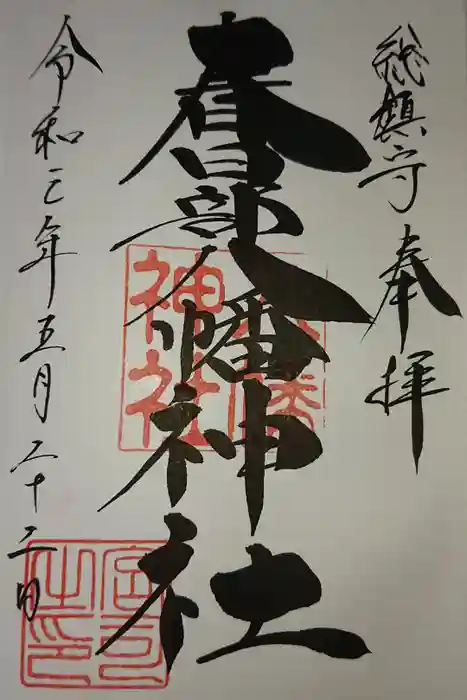 総鎮守 奉拝
春日部八幡神社
令和三年五月二十二日
八幡
神社
宮司
之印